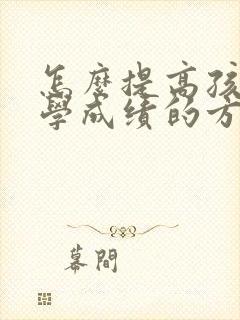 怎麼提高孩
學成績的方
幕間